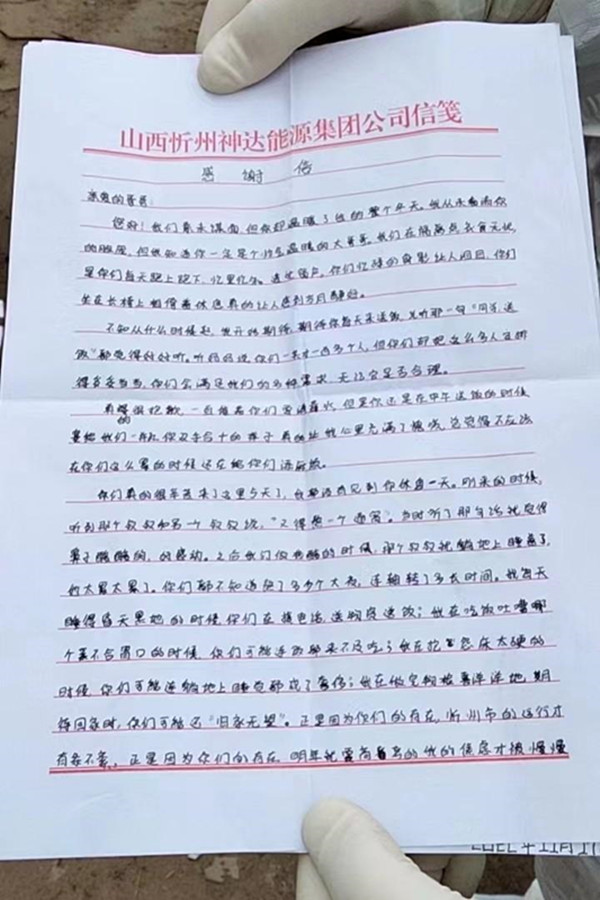 山西忻州神达能源集团公司信笺
感谢信
亲爱的哥哥:
您好!我们素未谋面,但你却温暖了我的整个冬天。我从未看清你
的脸庞,但我知道你一定是个非常温暖的大哥哥。我们在隔离点衣食无忧,
是你们每天跑上跑下,忙里忙外。透过窗户,你们忙碌的身影让人泪目,你们
坐在长椅上相偎着休息真的让人感到岁月静好。
不知从什么时候起,我开始期待,期待你每天来送饭,总听那一句"同学,送
饭"都觉得好好听。听妈妈说,你们一共才一百多个人,但你们却把这么多人安排
得妥妥当当,你们会满足我们的多种需求,无论它是否合理。
真的很抱歉,一直在 你们,但是你还是在中午送饭的时候
拿给我们一 你双手合十的样子真的让我心里充满了愧疚,总觉得不应该
在你们这么累的时候还在给你们添麻烦。
你们真的很辛苦来了这里5天了,我都没有见到你休息一天。刚来的时候,
听到那个叔叔和另一个叔叔说,"又得熬一个通宵"。当时听了那句话就觉得
鼻子酸酸的,好感动。之后我们做核酸的时候,那个叔叔就躺地上睡着了,
的太累太累了。你们都不知道熬了多少个大夜,连轴转了多长时间。我每天
睡得昏天黑地的时候,你们在接电话送物资送饭;我在吃饭吐槽哪
个菜不合胃口的时候,你们可能连饭都来不及吃;我在抱怨床太硬的
时候,你们可能连躺地上睡觉都成了奢侈;我在做完核酸喜洋洋地期
待回家时,你们可能还"归家无望"。正是因为你们的存在,忻州市的运行才
有条不紊,正是因为你们的存在,明年就要高考的我的焦虑才被慢慢
2022年11月1